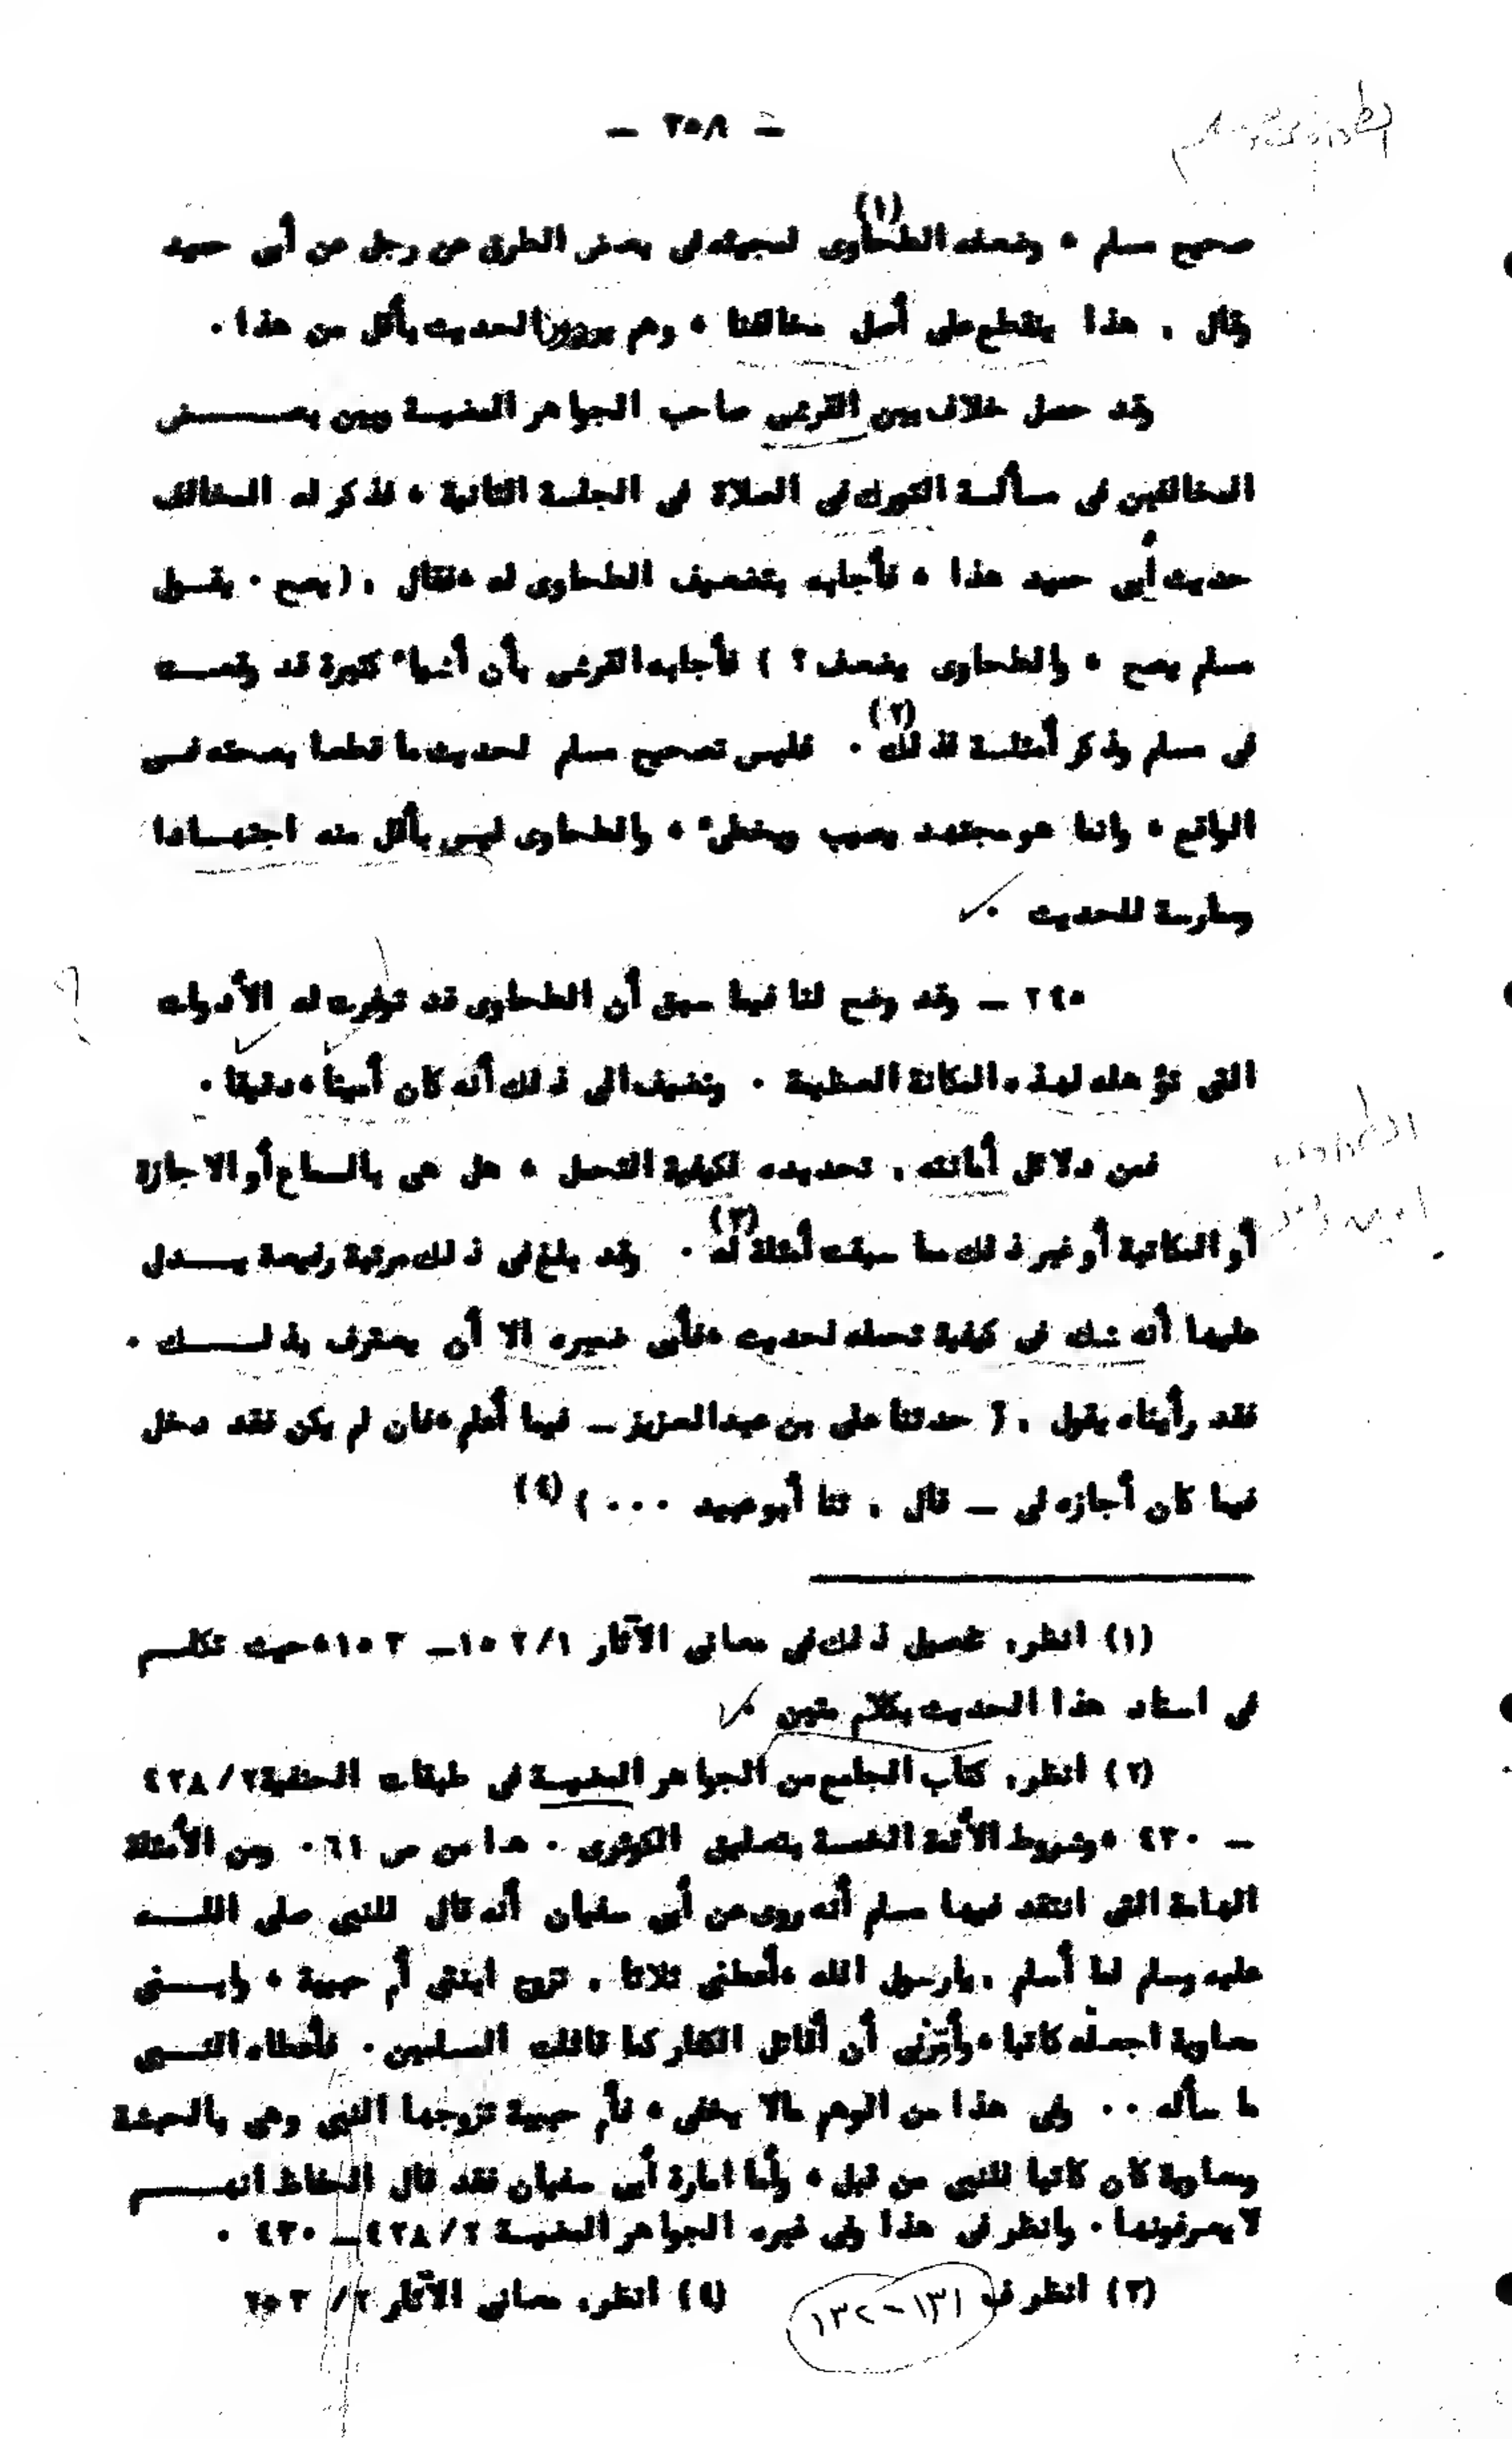 — ٢٥٨ —
صحيح مسلم ، وضعفه الطحاوى (١) لمجيئه فى بعض الطرق عن رجل عن أبى حميد
وقال ، هذا ينقطع على أصل مخالفنا ، وهم يردون الحديث بأقل من هذا .
وقد حصل خلاف بين القرشى صاحب الجواهر المضيـة وبين بعـــــض
المخالفين فى مسألـة التورك فى الصلاة فى الجلسة الثانية ، فذكر له المخالف
حديث أبى حميد هذا ، فأجابه بتضعيف الطحاوى له ،فقال ، (يصح . يقـول
مسلم يصح ، والطحاوى يضعف ؟ ) فأجابه القرشى بأن أشياء كثيرة قد وقعـــت
فى مسلم وذكر أمثلـة لذلك (٢) . فليس تصحيح مسلم لحديث ما قطعا بصحته فـى
الواقع ، وانما هو مجتهد يصيب ويخطىء ، والطحاوى ليس بأقل منه اجتهـادا
وممارسة للحديث .
٢٤٥ — وقد وضح لنا فيما سبق أن الطحاوى قد توفرت له الأدوات
التى تؤهله لهذه المكانة العظيمة . ونضيف الى ذلك أنه كان أمينا ،دقيقا .
فمن دلائل أمانته ، تحديده لكيفية التحمل ، هل هى بالسماع أو الاجازة
أو المكاتبة أو غير ذلك مما سبقت أمثلة له (٣) . وقد بلغ فى ذلك مرتبة رفيعة يـــدل
عليها أنه شك فى كيفية تحمله لحديث ،فأبى ضميره الا أن يعترف بذلـــــك .
فقد رأيناه يقول ، ( حدثنا على بن عبد العزيز — فيما أعلم ،فان لم يكن فقد دخل
فيما كان أجازه لى — قال ، ثنا أبو عبيد . . . ) (٤)
(١) انظر، تفصيل ذلك فى معانى الآثار ١/ ١٥٢ — ١٥٣ ،حيث تكلـم
فى اسناد هذا الحديث بكلام متين .
(٢) انظر، كتاب الجامع من الجواهر المضيـة فى طبقات الحنفية ٢/ ٤٢٨
— ٤٣٠ ،وشروط الأئمة الخمسة بتعليق الكوثرى . هامش ص ٦١ . ومن الأمثلة
الهامة التى انتقد فيها مسلم أنه روى عن أبى سفيان أنه قال للنبى صلى اللــه
عليه وسلم لما أسلم ، يارسول الله ،أعطنى ثلاثا ، تزوج ابنتى أم حبيبة ، وابــنى
معاوية اجعله كاتبا ،وأمرنى أن أقاتل الكفار كما قاتلت المسلمين . فأعطاه النــبى
ما سأله . . وفى هذا من الوهم مالا يخفى ، فأم حبيبة تزوجها النبى وهى بالحبشة
ومعاوية كان كاتبا للنبى من قبل ، وأما امارة أبى سفيان فقد قال الحفاظ انهـــم
لا يعرفونها . وانظر فى هذا وفى غيره الجواهر المضيـة ٢/ ٤٢٨ — ٤٣٠ .
(٣) انظر ف ١٣١ - ١٣٢ (٤) انظر، معانى الآثار ٢/